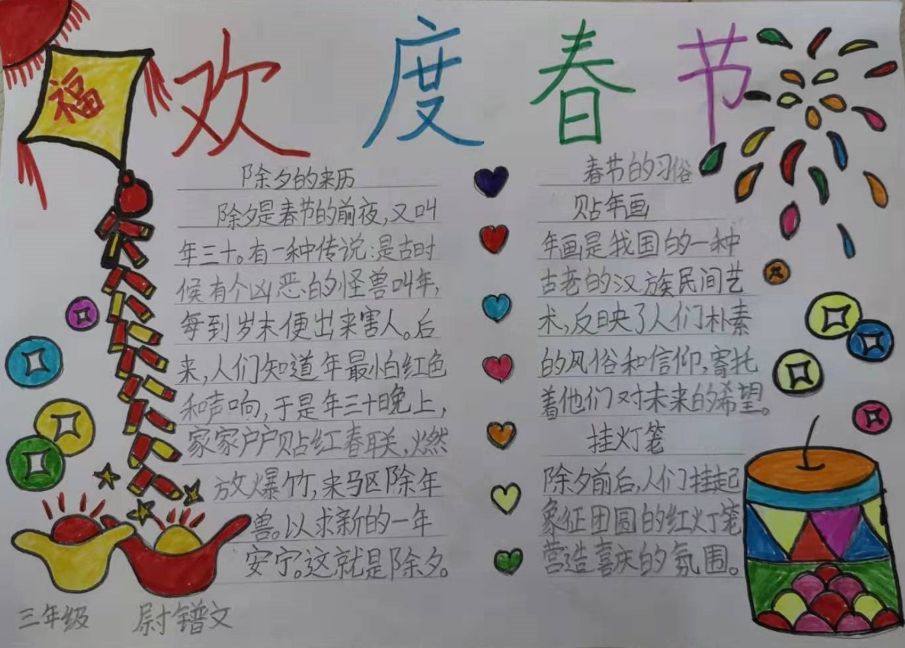 欢度春节
福
除夕的来历
除夕是春节的前夜,又叫
年三十。有一种传说:是古时
候有个凶恶的怪兽叫年,
每到岁末便出来害人。后
来,人们知道年最怕红色
和声响,于是年三十晚上,
家家户户贴红春联,燃
放爆竹,来驱除年
兽。以求新的一年
安宁。这就是除夕。
春节的习俗
贴年画
年画是我国的一种
古老的汉族民间艺
术,反映了人们朴素
的风俗和信仰,寄托
着他们对未来的希望。
挂灯笼
除夕前后,人们挂起
象征团圆的红灯笼
营造喜庆的氛围。
三年级 尉镨文